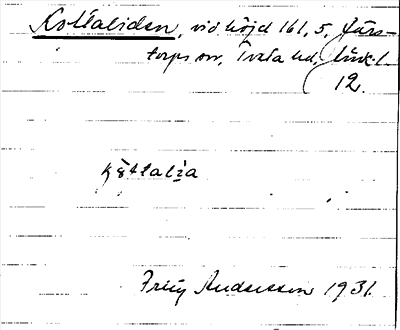 Kottaliden, vid höjd 161,5, Järs-
torps sn, Tveta hd, Jönk. l.
12.
Frey Andersson 1931.